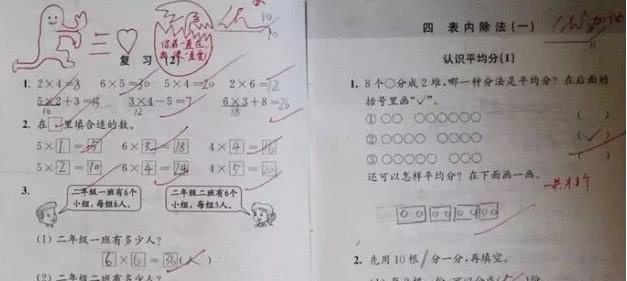 复 习 (2)
你若一直在,
我便一直爱
1. 2×4=8 6×5=30 5×4=20 2×6=12
5×2+3=13 3×4-5=7 6×3+8=26
10 12 18
2. 在□里填合适的数。
5×1=5 6×3=18 4×4=16
5×2=10 6×4=24 4×5=20
3.
二年级一班有6个
小组,每组6人。
二年级二班有6个
小组,每组5人。
(1) 二年级一班有多少人?
6×6=36(人)
(2) 二年级二班有多少人?
四 表内除法(一)
认识平均分(1)
1. 8个○分成2堆,哪一种分法是平均分?在后面的
括号里画“✓”。
① ○○ ○○○○○○ ( )
② ○○○○ ○○○○ (✓)
③ ○○○○○ ○○○ ( )
还可以怎样平均分?在下面画一画。
一共才8个
2. 先用10根 分一分,再填空。